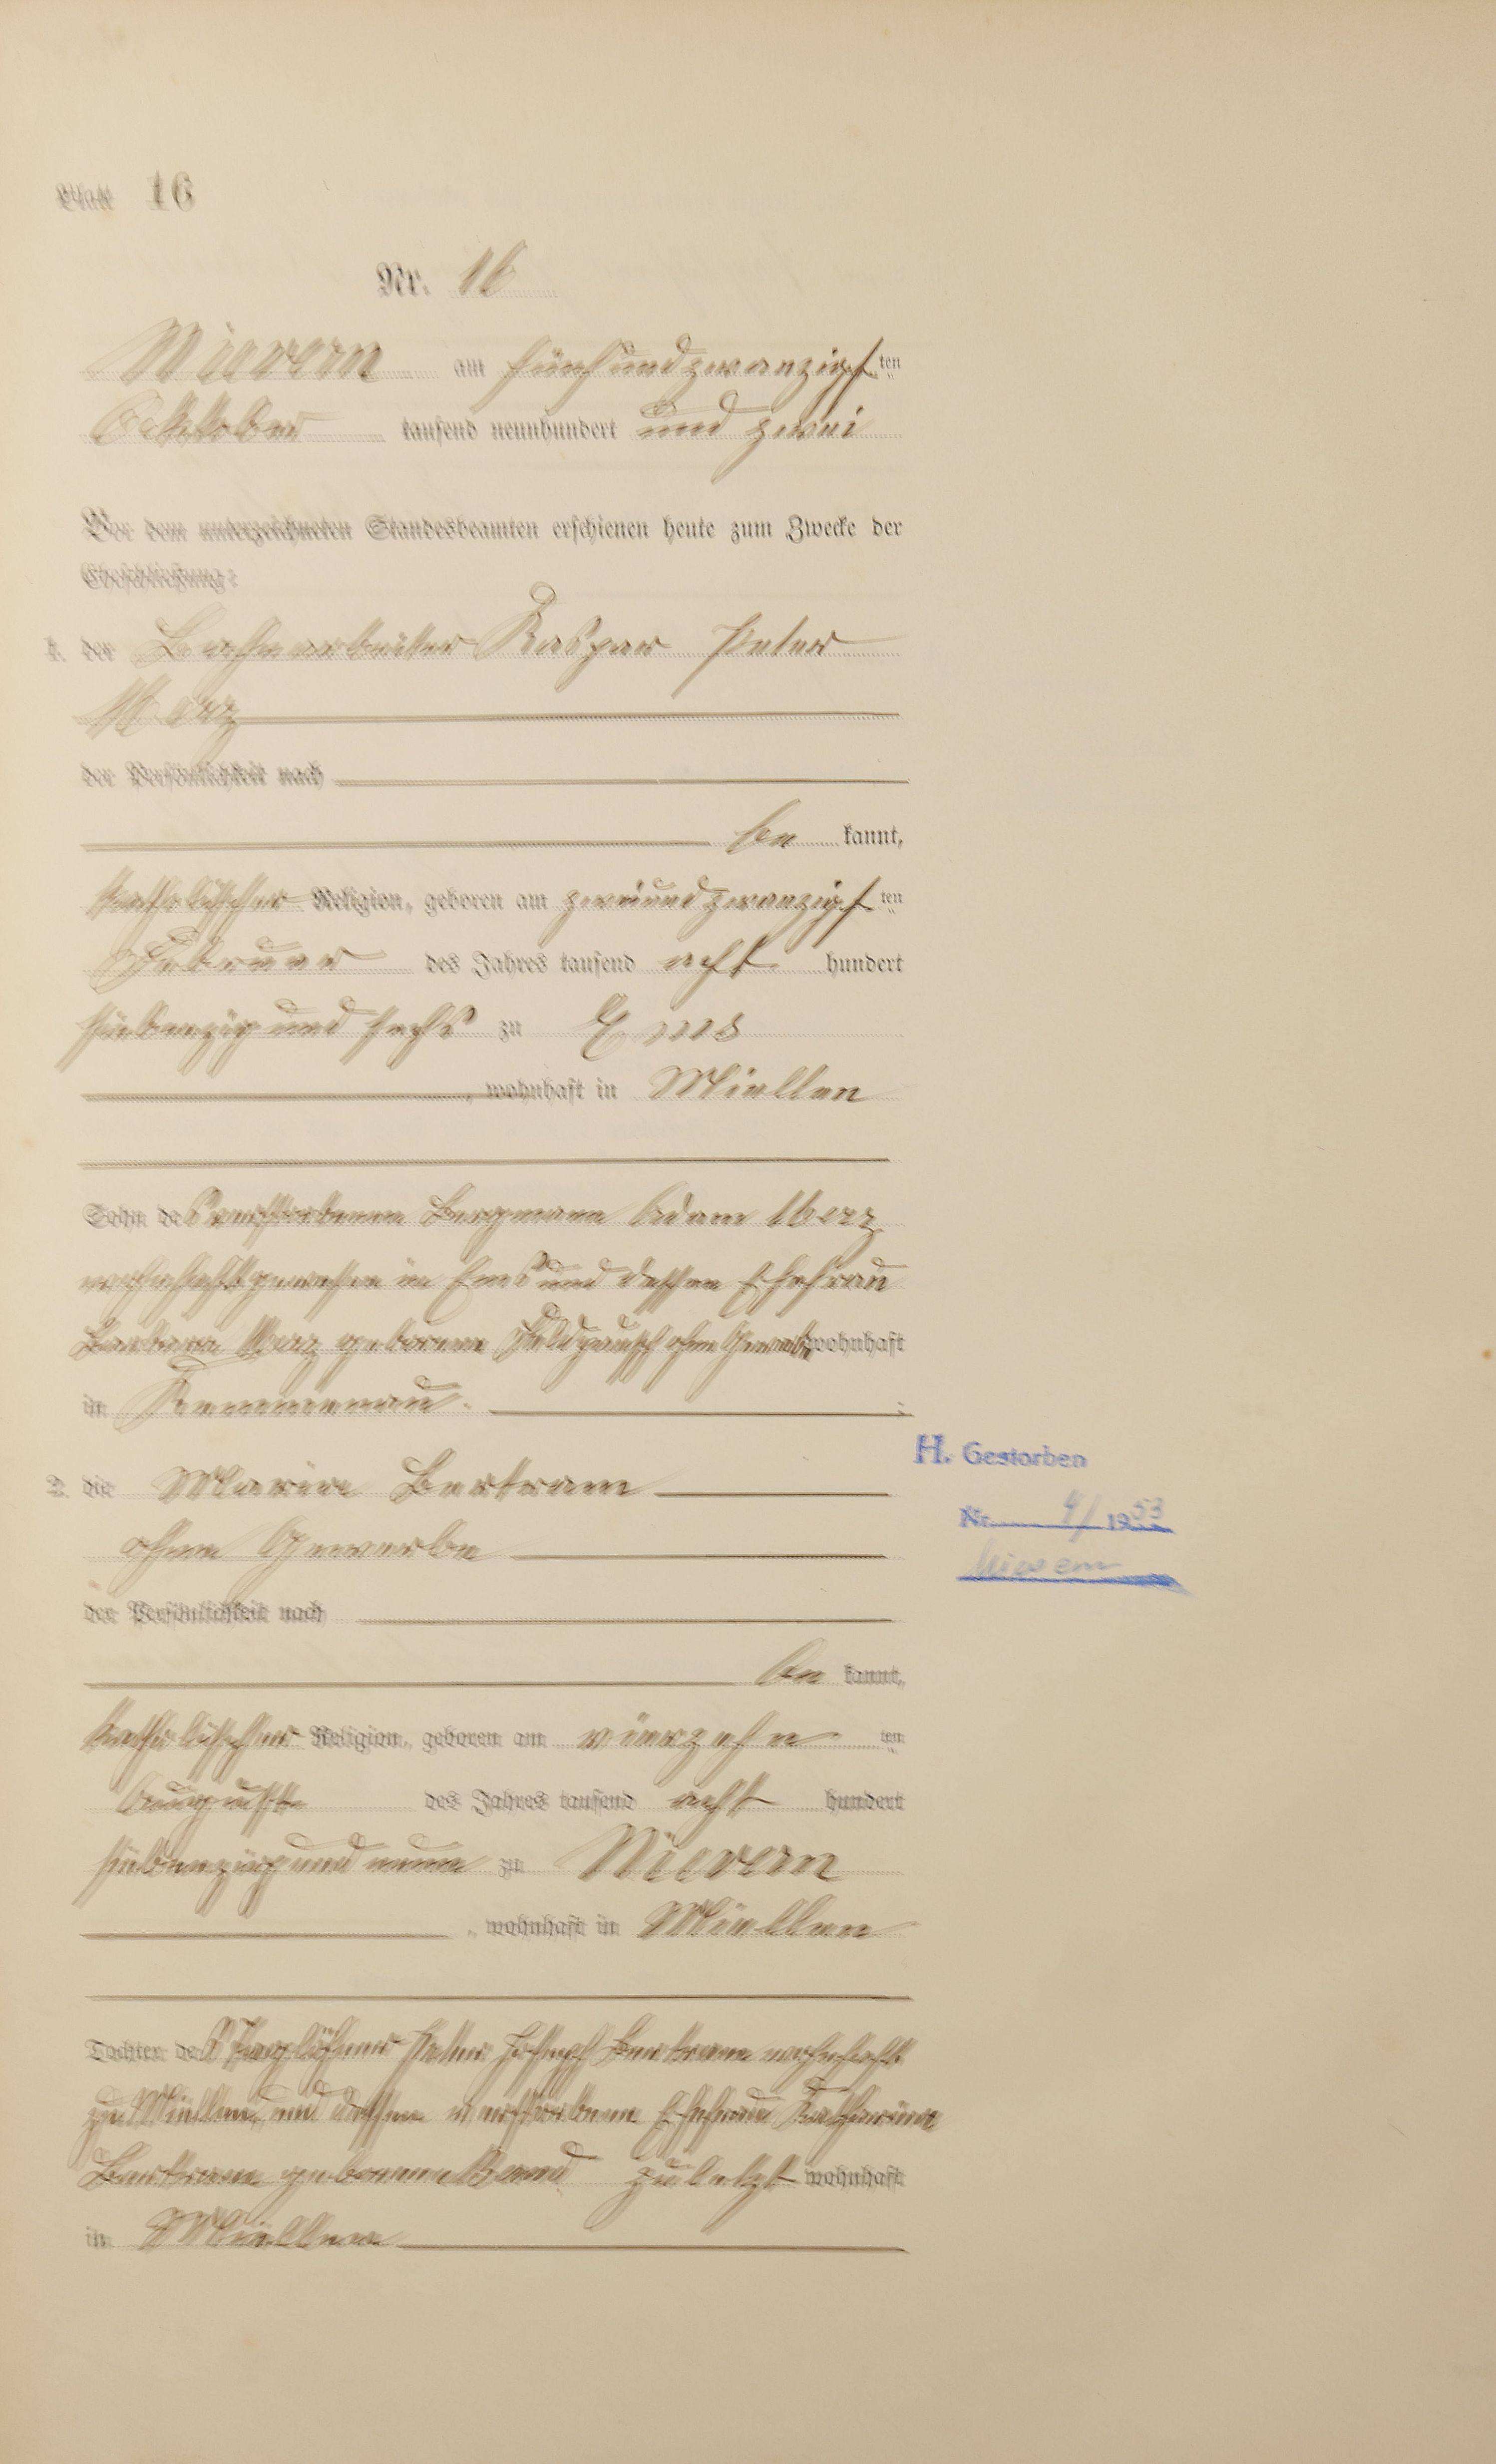 Blatt 16
Nr. 16
Nievern am fünfundzwanzigsten
Oktober tausend neunhundert und zwei
Vor dem unterzeichneten Standesbeamten erschienen heute zum Zwecke der
Eheschließung:
1. der Bahnarbeiter Kaspar Peter
Merz
der Persönlichkeit nach
be kannt,
katholischer Religion, geboren am zweiundzwanzigsten
Februar des Jahres tausend acht hundert
siebenzig und sechs zu Ems
, wohnhaft in Miellen
Sohn des verstorbenen Bergmann Adam Merz
wohnhaft gewesen in Ems und dessen Ehefrau
Barbara Merz geborene ohne Gewerbe wohnhaft
in Kemmenau.
2. die Maria Bertram
ohne Gewerbe
der Persönlichkeit nach
be kannt,
katholischer Religion, geboren am vierzehn ten
August des Jahres tausend acht hundert
siebenzig und neun zu Nievern
, wohnhaft in Miellen
Tochter des Taglöhner Peter Joseph Bertram wohnhaft
zu Miellen und dessen verstorbene Ehefrau Katharina
Bertram geborene zuletzt wohnhaft
in Miellen
H. Gestorben
Nr. 4/1953
Nievern